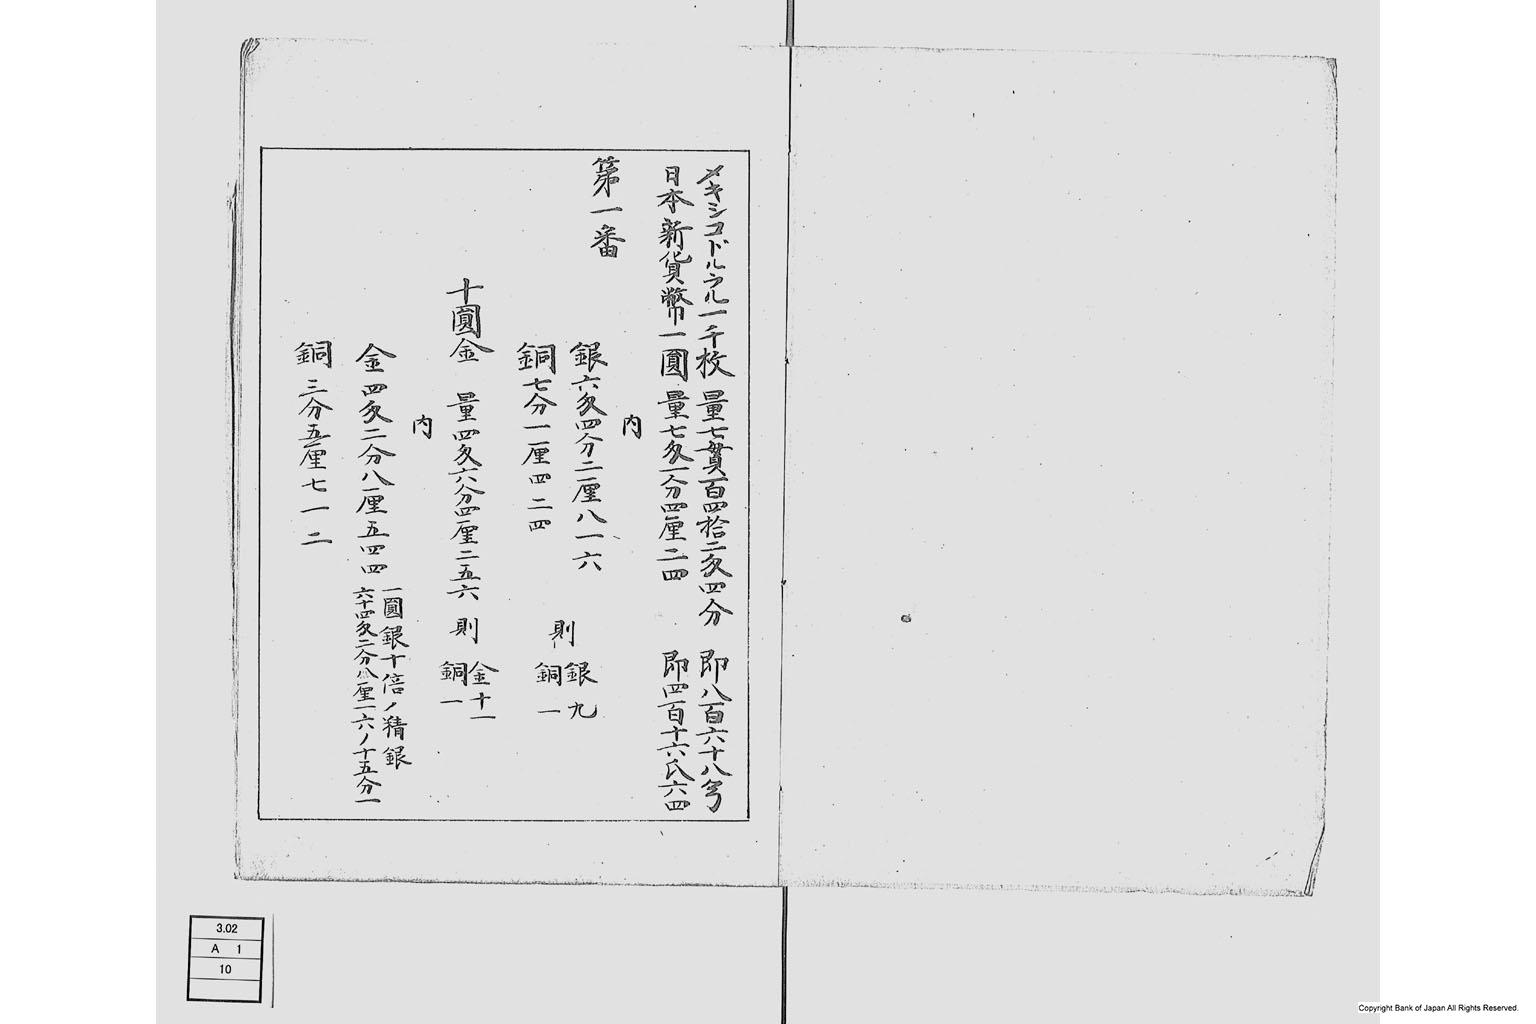 メキシコドルラル一千枚 量七貫百四拾二匁四分 即八百六十八
日本新貨幣一圓 量七匁一分四厘二四 即四百十六氏六四
第一番
内
銀六匁四分二厘八一六
銅七分一厘四二四
則 銀九
銅一
十圓金 量四匁六分四厘二五六 則 金十一
銅一
内
金四匁二分八厘五四四 一圓銀十倍ノ精銀
六十四匁二分八厘一六ノ十五分一
銅三分五厘七一二
3.02
A 1
10
Copyright Bank of Japan All Rights Reserved.